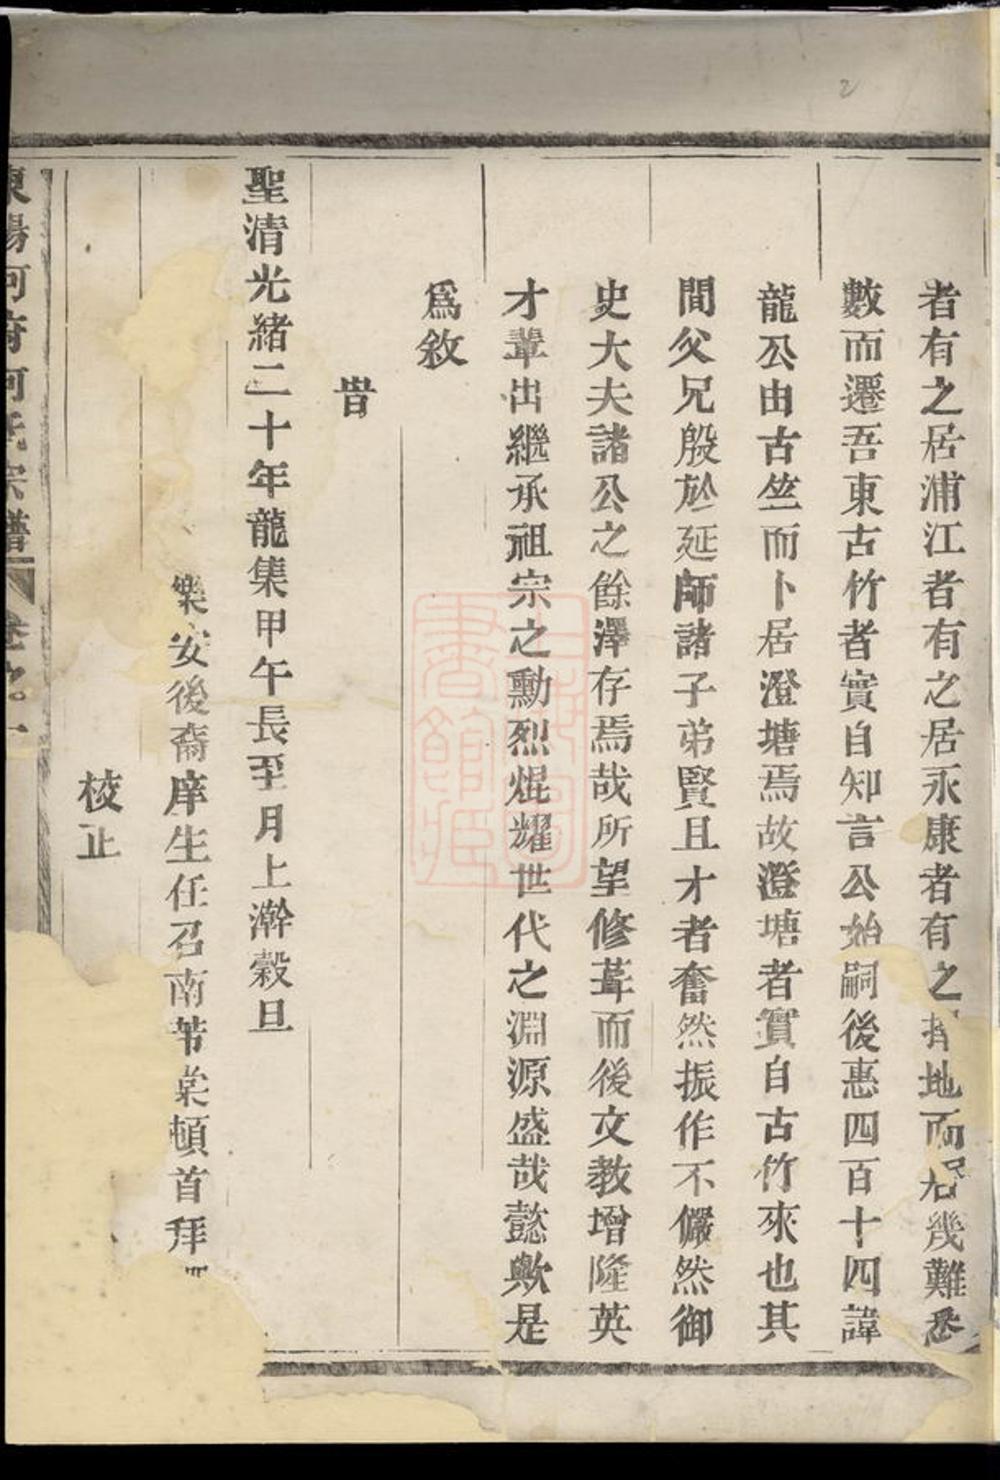 者有之居浦江者有之居永康者有之擇地而居幾難悉
數而遷吾東古竹者實自知言公始嗣後惠四百十四諱
龍公由古竺而卜居澄塘焉故澄塘者實自古竹來也其
間父兄殷於延師諸子弟賢且才者奮然振作不儼然御
史大夫諸公之餘澤存焉哉所望修葺而後文教增隆英
才輩出繼承祖宗之勳烈焜耀世代之淵源盛哉懿歟是
爲敘
旹
聖清光緒二十年龍集甲午長至月上澣穀旦
樂安後裔庠生任召南芾棠頓首拜
校正
東陽河府何氏宗譜 卷之一